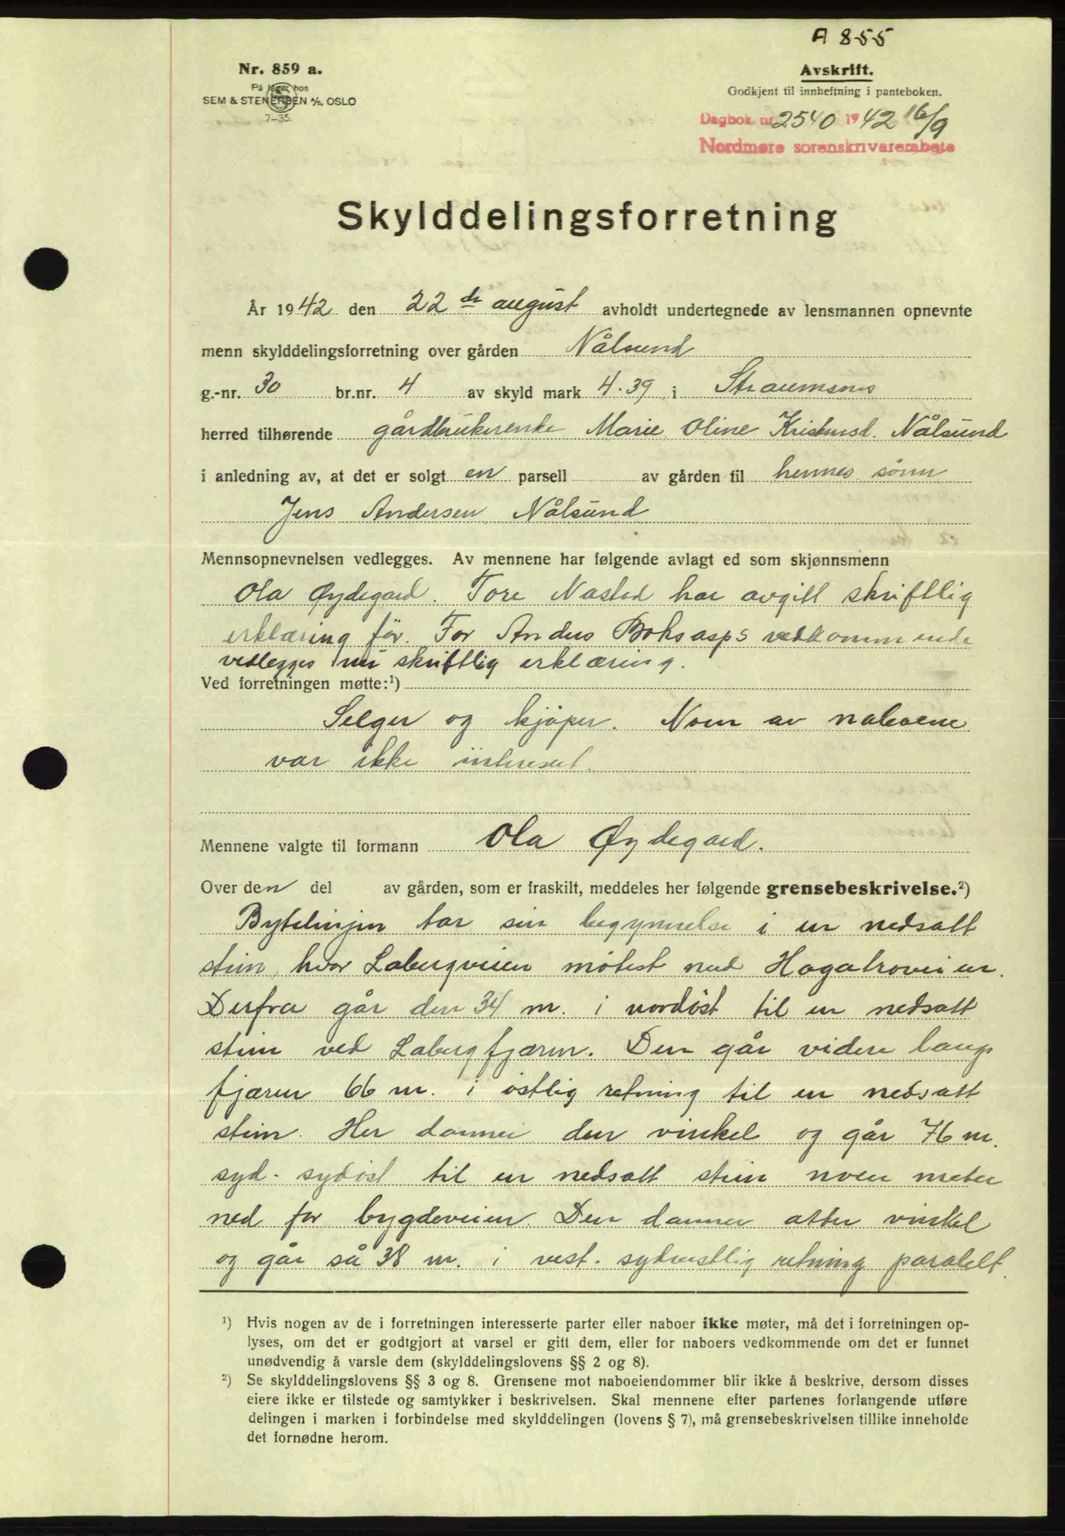 A 855
Nr. 859 a.
På lager hos
SEM & STENERSEN A/S, OSLO
7-35.
Avskrift.
Godkjent til innheftning i panteboken.
Dagbok nr. 2540 1942 16/9
Nordmøre sorenskriverembete
Skylddelingsforretning
År 1942 den 22de august avholdt undertegnede av lensmannen opnevnte
menn skylddelingsforretning over gården Nålsund
g.-nr. 30 br.nr. 4 av skyld mark 4.39 i Straumsnes
herred tilhørende gårdbrukerenke Marie Oline Kristiansd. Nålsund
i anledning av, at det er solgt en parsell av gården til hennes sønn
Jens Andersen Nålsund
Mennsopnevnelsen vedlegges. Av mennene har følgende avlagt ed som skjønnsmenn
Ola Øydegard. Tore Nastad har avgitt skriftlig
erklæring før. For Anders Boksasps vedkommende
vedlegges nu skriftlig erklæring.
Ved forretningen møtte:¹)
Selger og kjøper. Noen av naboene
var ikke interesert.
Mennene valgte til formann Ola Øydegard.
Over den del av gården, som er fraskilt, meddeles her følgende grensebeskrivelse.²)
Bytelinjen tar sin begynnelse i en nedsatt
stein, hvor Labergveien møtest med Hagatroveien.
Derfra går den 34 m. i nordøst til en nedsatt
stein ved Labergfjæren. Den går videre langs
fjæren 66 m. i østlig retning til en nedsatt
stein. Her danner den vinkel og går 76 m.
syd-sydøst til en nedsatt stein noen meter
ned for bygdeveien. Den danner atter vinkel
og går så 38 m. i vest-sydvestlig retning paralelt
¹) Hvis nogen av de i forretningen interesserte parter eller naboer ikke møter, må det i forretningen op-
lyses, om det er godtgjort at varsel er gitt dem, eller for naboers vedkommende om det er funnet
unødvendig å varsle dem (skylddelingslovens §§ 2 og 8).
²) Se skylddelingslovens §§ 3 og 8. Grensene mot naboeiendommer blir ikke å beskrive, dersom disses
eiere ikke er tilstede og samtykker i beskrivelsen. Skal mennene efter partenes forlangende utføre
delingen i marken i forbindelse med skylddelingen (lovens § 7), må grensebeskrivelsen tillike inneholde
det fornødne herom.